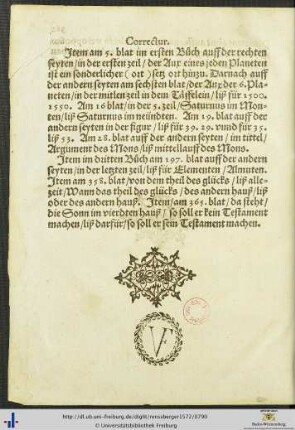 Correctur.
Item am 5. blat im ersten Büch auff der rechten
seyten / in der ersten zeil / der Aux eines jeden Planeten
ist ein sonderlicher ( ort ) setz ort hinzu. Darnach auff
der andern seyten am sechsten blat / der Aux der 6. Pla-
neten / in der mitlen zeil in dem Täffelein / liß für 1500.
1550. Am 16 blat / in der 5. zeil / Saturnus im Mon-
ten / liß Saturnus im neündten. Am 19. blat auff der
andern seyten in der figur / liß für 39. 29. vnnd für 35.
liß 53. Am 28. blat auff der andern seyten / im mittel /
Argument des Mons / liß mittellauff des Mons.
Item im dritten Büch am 197. blat auff der andern
seyten / in der letzten zeil / liß für Elementen / Almuten.
Item am 358. blat / von dem theil des glücks / liß alle-
zeit / Wann das theil des glücks / des andern hauß / liß
oder des andern hauß. Item / am 365. blat / da steht /
die Sonn im vierdten hauß / so soll er kein Testament
machen / liß darfür / so soll er sein Testament machen.
V
http://dl.ub.uni-freiburg.de/diglit/rensberger1572/0790
© Universitätsbibliothek Freiburg